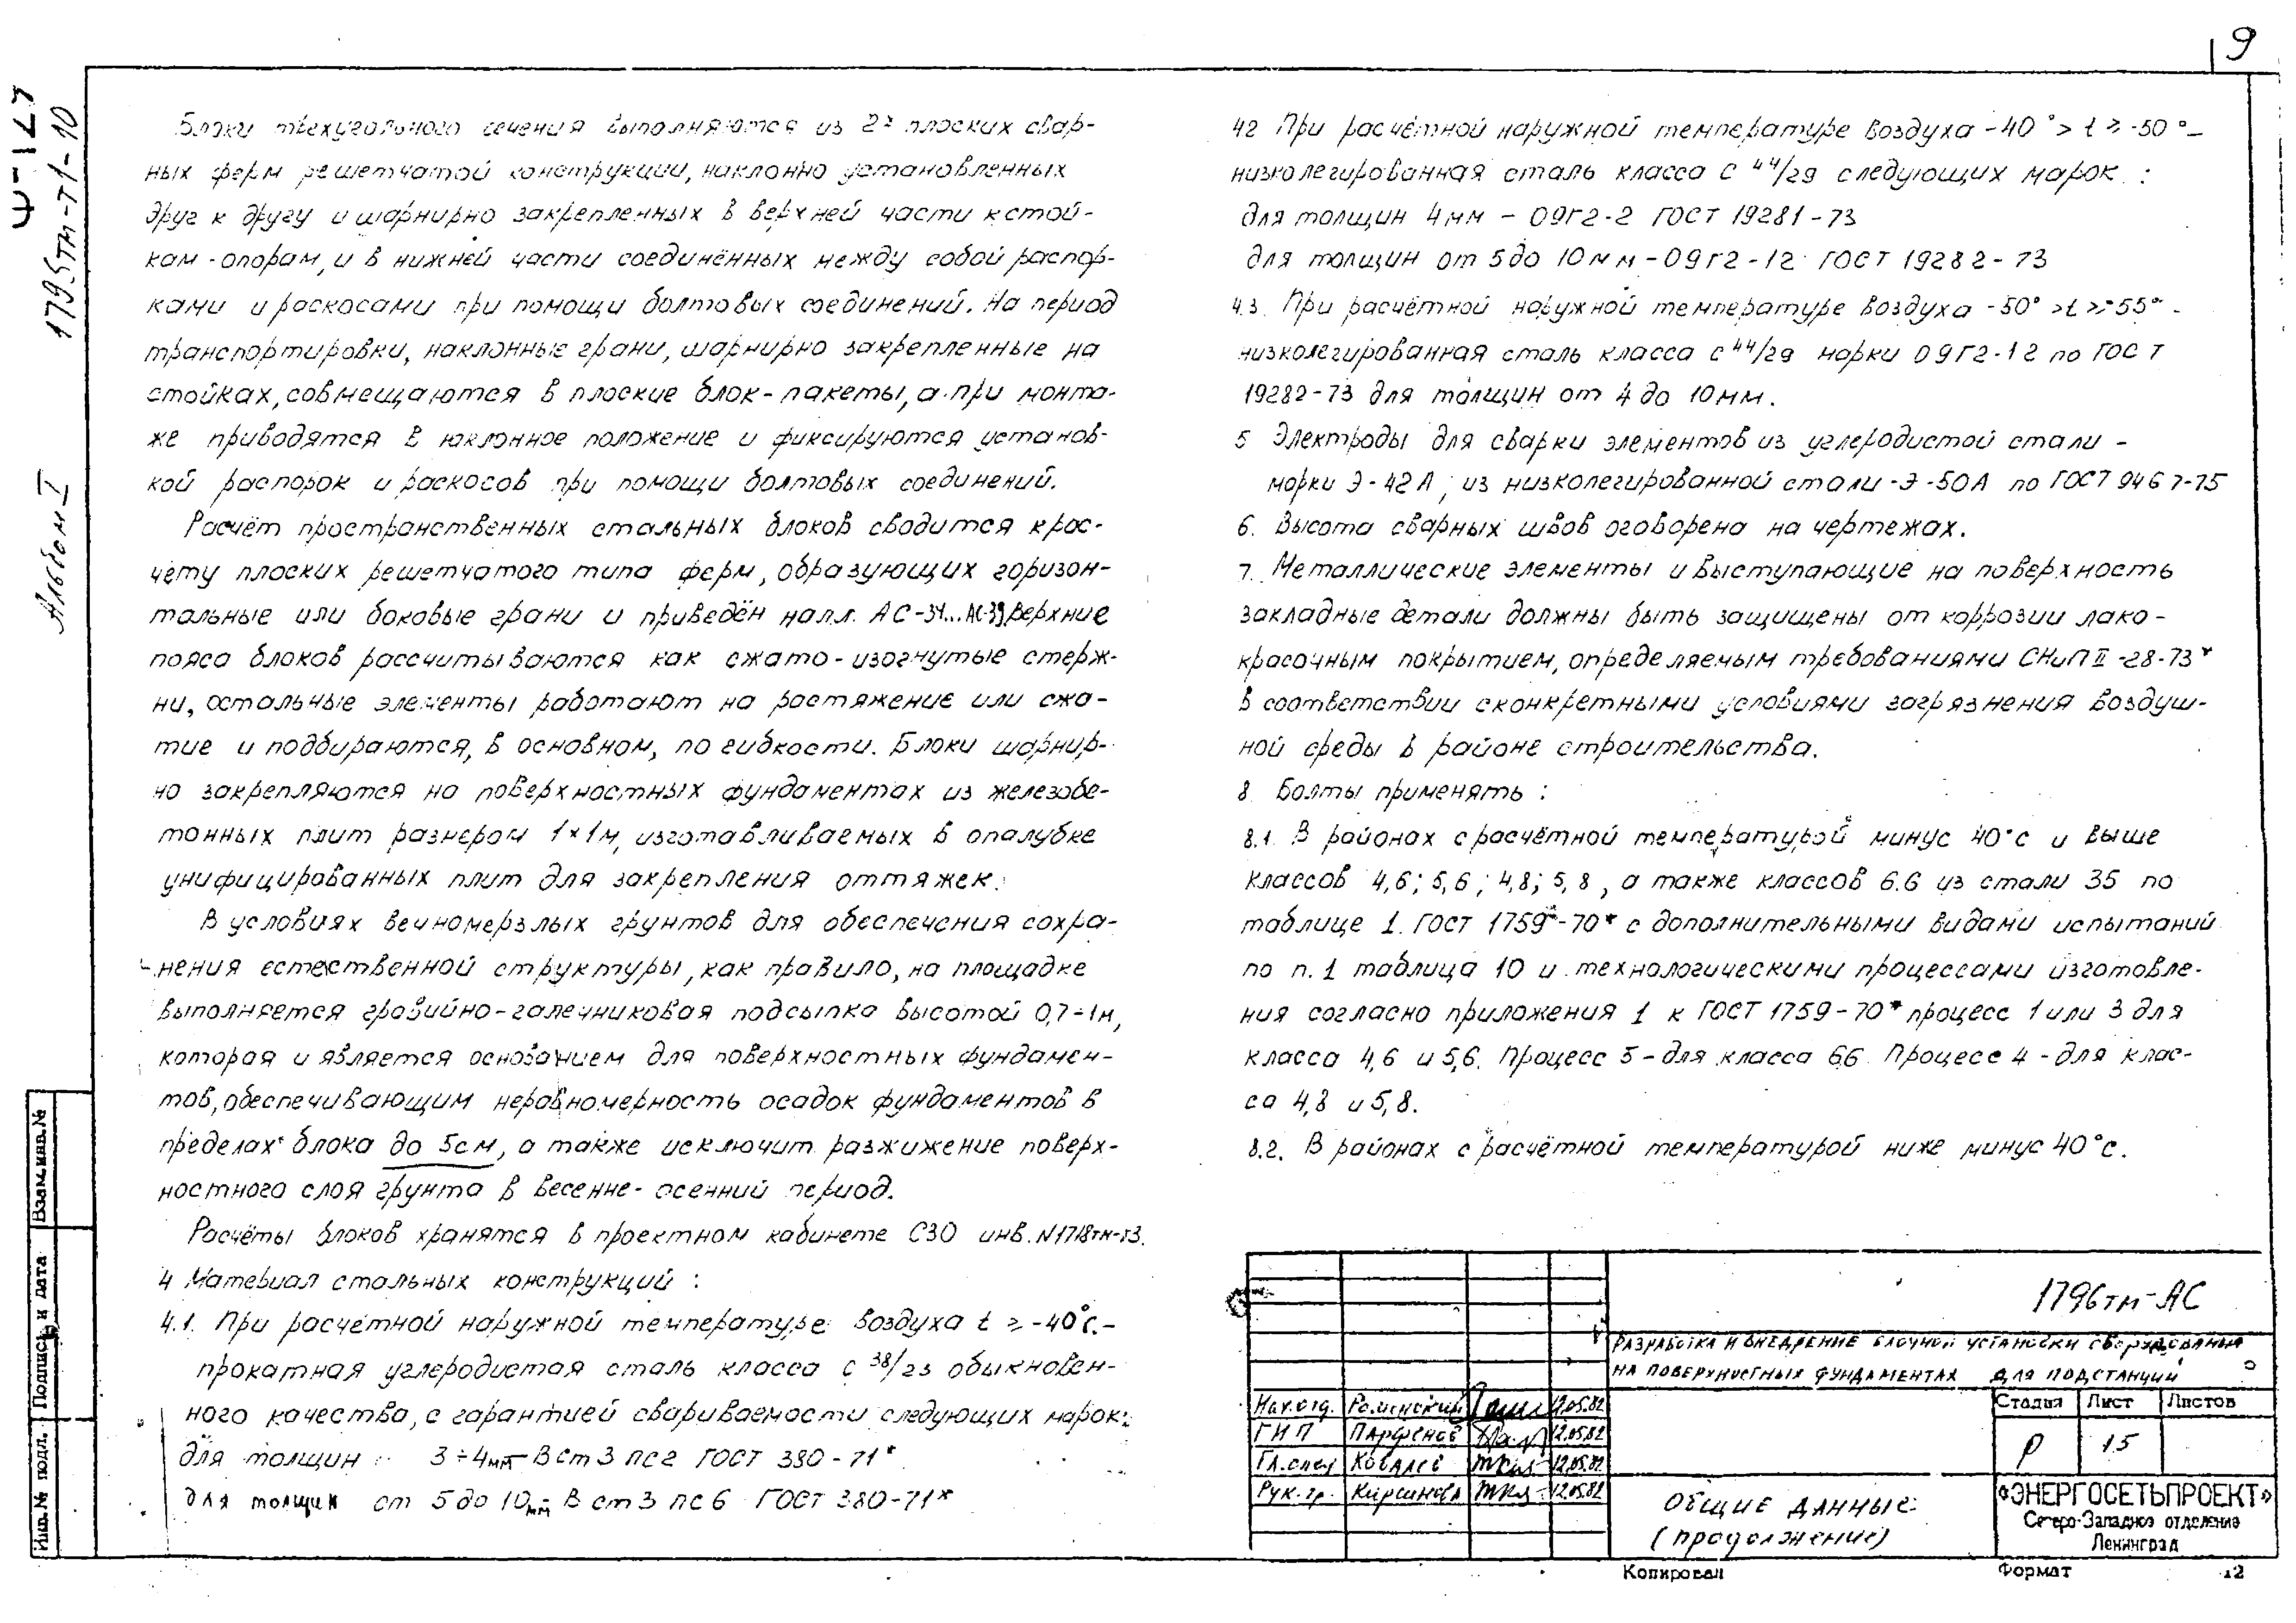 9
Ф-127
1795тм-т1-10
Альбом I
Блоки трехугольного сечения выполняются из 2х плоских свар-
ных ферм решетчатой конструкции, наклонно установленных
друг к другу и шарнирно закрепленных в верхней части к стой-
кам-опорам, и в нижней части соединённых между собой распор-
ками и раскосами при помощи болтовых соединений. На период
транспортировки, наклонные грани, шарнирно закрепленные на
стойках, совмещаются в плоские блок-пакеты, а при монта-
же приводятся в наклонное положение и фиксируются установ-
кой распорок и раскосов при помощи болтовых соединений.
Расчёт пространственных стальных блоков сводится к рас-
чёту плоских решетчатого типа ферм, образующих горизон-
тальные или боковые грани и приведён на л.л. АС-34...АС-39 Верхние
пояса блоков рассчитываются как сжато-изогнутые стерж-
ни, остальные элементы работают на растяжение или сжа-
тие и подбираются, в основном, по гибкости. Блоки шарнир-
но закрепляются на поверхностных фундаментах из железобе-
тонных плит размером 1×1м, изготавливаемых в опалубке
унифицированных плит для закрепления оттяжек.
В условиях вечномерзлых грунтов для обеспечения сохра-
нения естественной структуры, как правило, на площадке
выполняется гравийно-галечниковая подсыпка высотой 0,7÷1м,
которая и является основанием для поверхностных фундамен-
тов, обеспечивающим неравномерность осадок фундаментов в
пределах блока до 5см, а также исключит разжижение поверх-
ностного слоя грунта в весенне-осенний период.
Расчёты блоков хранятся в проектном кабинете СЗО инв. N1718тм-т3.
4 Материал стальных конструкций :
4.1. При расчётной наружной температуре воздуха t ≥ -40°с.-
прокатная углеродистая сталь класса С 38/23 обыкновен-
ного качества, с гарантией свариваемости следующих марок:
для толщин 3÷4мм - В ст 3 пс2 ГОСТ 380-71*
для толщин от 5 до 10мм - В ст 3 пс 6 ГОСТ 380-71*
42 При расчётной наружной температуре воздуха -40° > t ≥ -50° -
низколегированная сталь класса С 44/29 следующих марок :
для толщин 4мм - 09Г2-2 ГОСТ 19281-73
для толщин от 5 до 10мм - 09Г2-12 ГОСТ 19282-73
4.3. При расчётной наружной температуре воздуха -50° > t ≥ -55° -
низколегированная сталь класса С 44/29 марки 09Г2-12 по ГОСТ
19282-73 для толщин от 4 до 10мм.
5 Электроды для сварки элементов из углеродистой стали -
марки Э-42А, из низколегированной стали -Э-50А по ГОСТ 9467-75
6. Высота сварных швов оговорена на чертежах.
7. Металлические элементы и выступающие на поверхность
закладные детали должны быть защищены от коррозии лако-
красочным покрытием, определяемым требованиями СНиП II-28-73*
в соответствии с конкретными условиями загрязнения воздуш-
ной среды в районе строительства.
8 Болты применять :
8.1. В районах с расчётной температурой минус 40°с и выше
классов 4,6; 5,6; 4,8; 5,8, а также классов 6.6 из стали 35 по
таблице 1. ГОСТ 1759*-70* с дополнительными видами испытаний
по п.1 таблица 10 и технологическими процессами изготовле-
ния согласно приложения 1 к ГОСТ 1759-70* процесс 1 или 3 для
класса 4,6 и 5,6. Процесс 5 - для класса 6.6 Процесс 4 - для клас-
са 4,8 и 5,8.
8.2. В районах с расчётной температурой ниже минус 40°с.
Взам.инв.№
Подпись и дата
Инв.№ подл.
1796тм-АС
Разработка и внедрение блочной установки оборудования
на поверхностных фундаментах для подстанций
Нач.отд. Роменский 12.05.82
ГИП Парфенов 12.05.82
Гл.спец Ковалев 12.05.82
Рук.гр. Кирсанова 12.05.82
Стадия Лист Листов
Р 1.5
Общие данные
(продолжение)
«ЭНЕРГОСЕТЬПРОЕКТ»
Северо-Западное отделение
Ленинград
Копировал
Формат 12